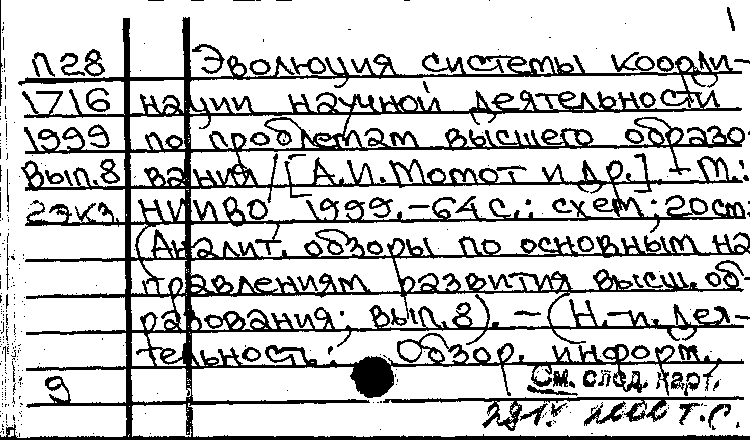 1
П28 Эволюция системы коорди-
1716 нации научной деятельности
1999 по проблемам высшего образо-
Вып.8 вания / [А.И.Момот и др.]. – М.:
2экз. НИИВО, 1999. – 64 с.: схем; 20 см. –
(Аналит. обзоры по основным на-
правлениям развития высш. об-
разования; вып. 8). – (Н.-и. дея-
тельность: Обзор. информ.,
9 См. след. карт.
29 IV 2000 Т.С.